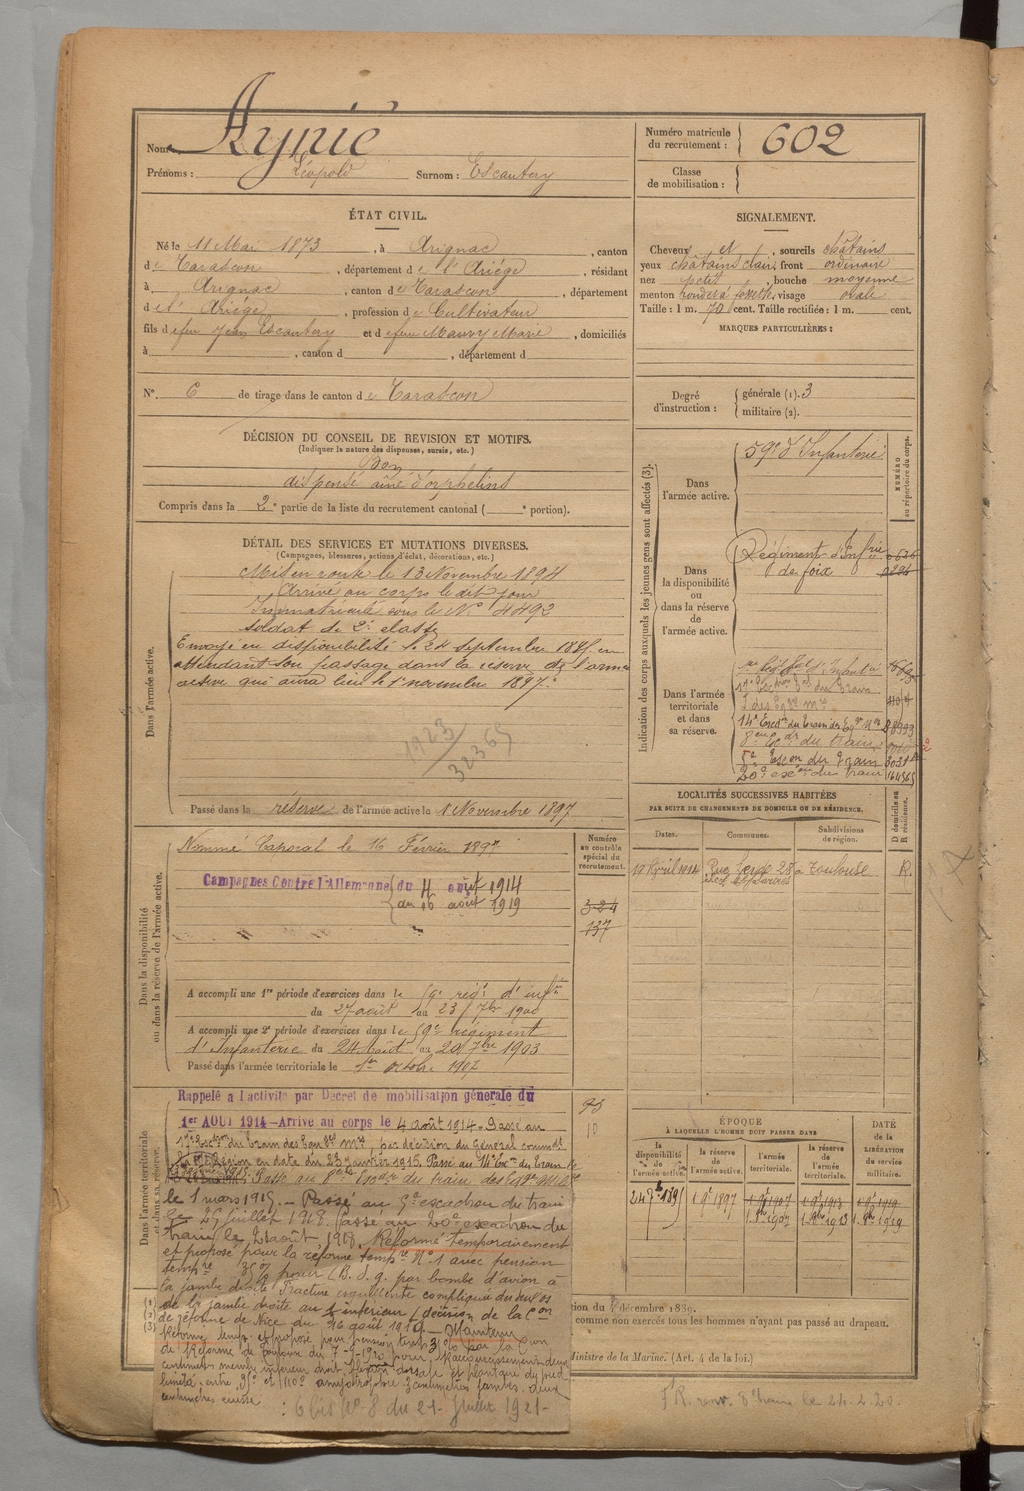 Nom : Aynié
Prénoms : Léopold Surnom : Escautery
Numéro matricule du recrutement : 602
Classe de mobilisation :
ÉTAT CIVIL.
Né le 11 Mai 1873, à Arignac, canton
de Tarascon, département de l'Ariége, résidant
à Arignac, canton de Tarascon, département
de l'Ariége, profession de Cultivateur
fils de feu Jean Escautery et de feue Maury Marie, domiciliés
à , canton d , département d
N° 6 de tirage dans le canton de Tarascon
SIGNALEMENT.
Cheveux et , sourcils châtains
yeux châtains clair, front ordinaire
nez petit, bouche moyenne
menton rond, visage ovale
Taille : 1 m. 70 cent. Taille rectifiée : 1 m. cent.
MARQUES PARTICULIÈRES :
Degré d'instruction : générale (1). 3
militaire (2).
DÉCISION DU CONSEIL DE REVISION ET MOTIFS.
(Indiquer la nature des dispenses, sursis, etc.)
Bon
dispensé aîné d'orphelins
Compris dans la 2e partie de la liste du recrutement cantonal ( e portion).
DÉTAIL DES SERVICES ET MUTATIONS DIVERSES.
(Campagnes, blessures, actions d'éclat, décorations, etc.)
Dans l'armée active.
Mis en route le 13 Novembre 1894
Arrivé au corps le dit jour
Immatriculé sous le N° 4492
soldat de 2e classe
Envoyé en disponibilité le 24 septembre 1895 en
attendant son passage dans la réserve de l'armée
active qui aura lieu le 1er novembre 1897.
1923/32365
Passé dans la réserve de l'armée active le 1 Novembre 1897
Indication des corps auxquels les jeunes gens sont affectés (3).
NUMÉRO au répertoire du corps.
Dans l'armée active.
59e d'Infanterie
Dans la disponibilité ou dans la réserve de l'armée active.
Régiment d'Infrie
de foix
Dans l'armée territoriale et dans sa réserve.
14e Escon du train des Eq. Mres
8eme Escon du train
5e Escon du train
20e escon du train
LOCALITÉS SUCCESSIVES HABITÉES
PAR SUITE DE CHANGEMENTS DE DOMICILE OU DE RÉSIDENCE.
Dates. Communes. Subdivisions de région. D domicile ou R résidence.
19 Avril 1914 Rue 28 à Toulouse R.
Dans la disponibilité ou dans la réserve de l'armée active.
Numéro au contrôle spécial du recrutement.
Nommé Caporal le 16 Février 1897
Campagnes Contre l'Allemagne du 4 août 1914
au 16 août 1919
324
137
A accompli une 1re période d'exercices dans le 59e régt d'infie
du 27 août au 23 7bre 1900
A accompli une 2e période d'exercices dans le 59e régiment
d'Infanterie du 24 Août au 20 7bre 1903
Passé dans l'armée territoriale le 1er octobre 1907
Dans l'armée territoriale et dans sa réserve.
Rappelé à l'activité par Décret de mobilisation générale du
1er AOUT 1914 - Arrivé au corps le 4 août 1914 - Passé au
17e Escon du train des Equip. Mres, par décision du Général commdt
la Région en date du 23 janvier 1915. Passé au 14e Escon du train
Passé au 8e Escon du train des Eq. Mres
le 1 mars 1915. - Passé au 5e escadron du train
le 25 juillet 1918. Passé au 20e escadron du
train le 21 août 1918. Réformé temporairement
et proposé pour la réforme tempre N° 1 avec pension
tempre 35% pour (B. d. g. par bombe d'avion à
la jambe droite Fracture esquilleuse compliquée des deux os
de la jambe droite au 1/3 inférieur) décision de la Con
de réforme de Nice du 16 août 1919 - Maintenu
Réforme temp. et proposé pour pension temp. 3 % par la Con
de Réforme de Toulouse du 7-9-1920 pour Raccourcissement deux
centimètres membre inférieur droit flexion dorsale et plantaire du pied
limitée entre 95° et 110° amyotrophie 3 centimètres jambe, deux
centimètres cuisse
: 6 bis N° 8 du 21 - Juillet 1921 -
ÉPOQUE
À LAQUELLE L'HOMME DOIT PASSER DANS
la disponibilité de l'armée active. la réserve de l'armée active. l'armée territoriale. la réserve de l'armée territoriale. DATE de la LIBÉRATION du service militaire.
24 7bre 1895 1 9bre 1897 1 9bre 1907 1 9bre 1913 1 9bre 1919
1 8bre 1907 1 8bre 1913 1 8bre 1919
(1)
(2)
(3)
tion du décembre 1889.
comme non exercés tous les hommes n'ayant pas passé au drapeau.
Ministre de la Marine. (Art. 4 de la loi.)